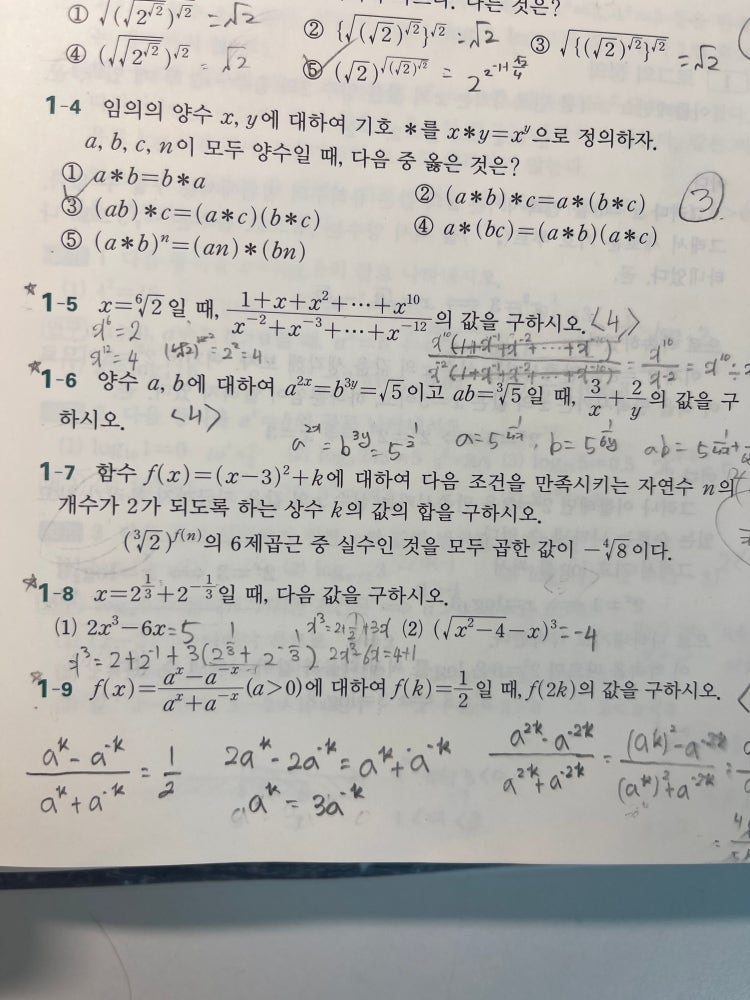 다른 것은?
① √((√2^√2)^√2) = √2 ② {√((√2)^√2)}^√2 = √2 ③ √({(√2)^√2}^√2) = √2
④ (√(√2^√2))^√2 = √2 ⑤ (√2)^√((√2)^√2) =
1-4 임의의 양수 x, y에 대하여 기호 *를 x*y=x^y으로 정의하자.
a, b, c, n이 모두 양수일 때, 다음 중 옳은 것은?
① a*b=b*a ② (a*b)*c=a*(b*c) 3
③ (ab)*c=(a*c)(b*c) ④ a*(bc)=(a*b)(a*c)
⑤ (a*b)^n=(an)*(bn)
1-5 x=⁶√2일 때, (1+x+x²+⋯+x¹⁰)/(x⁻²+x⁻³+⋯+x⁻¹²)의 값을 구하시오. <4>
x⁶=2
x¹²=4 =2²=4 = x¹⁰/x⁻² = x¹⁰÷
1-6 양수 a, b에 대하여 a^(2x)=b^(3y)=√5이고 ab=³√5일 때, 3/x+2/y의 값을 구
하시오. <4>
a^(2x)=b^(3y)=5^(1/2) a=5^(1/4x), b=5^(1/6y) ab=5^(1/4x+
1-7 함수 f(x)=(x-3)²+k에 대하여 다음 조건을 만족시키는 자연수 n의
개수가 2가 되도록 하는 상수 k의 값의 합을 구하시오.
(³√2)^f(n)의 6제곱근 중 실수인 것을 모두 곱한 값이 -⁴√8이다.
1-8 x=2^(1/3)+2^(-1/3)일 때, 다음 값을 구하시오.
(1) 2x³-6x=5 x³=2+1/2+3x (2) (√(x²-4)-x)³=-4
x³=2+2⁻¹+3(2^(1/3)+2^(-1/3)) 2x³-6x=4+1
1-9 f(x)=(a^x-a^(-x))/(a^x+a^(-x))(a>0)에 대하여 f(k)=1/2일 때, f(2k)의 값을 구하시오.
(a^k-a^(-k))/(a^k+a^(-k))=1/2 2a^k-2a^(-k)=a^k+a^(-k) (a^(2k)-a^(-2k))/(a^(2k)+a^(-2k))=((a^k)²-a^(-2k))/((a^k)²+a^(-2k))=
a^k=3a^(-k)